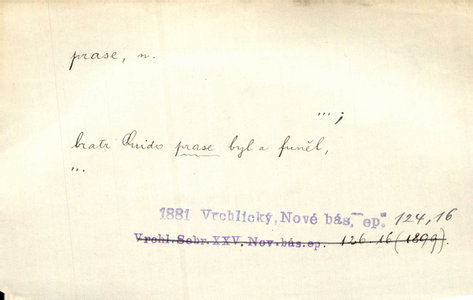 prase, n.
... ;
bratr Quido prase byl a funěl,
...
1881 Vrchlický, Nové bás. ep. 124, 16
Vrchl. Sebr. XXV. Nov. bás. ep. 126 16 (1899).